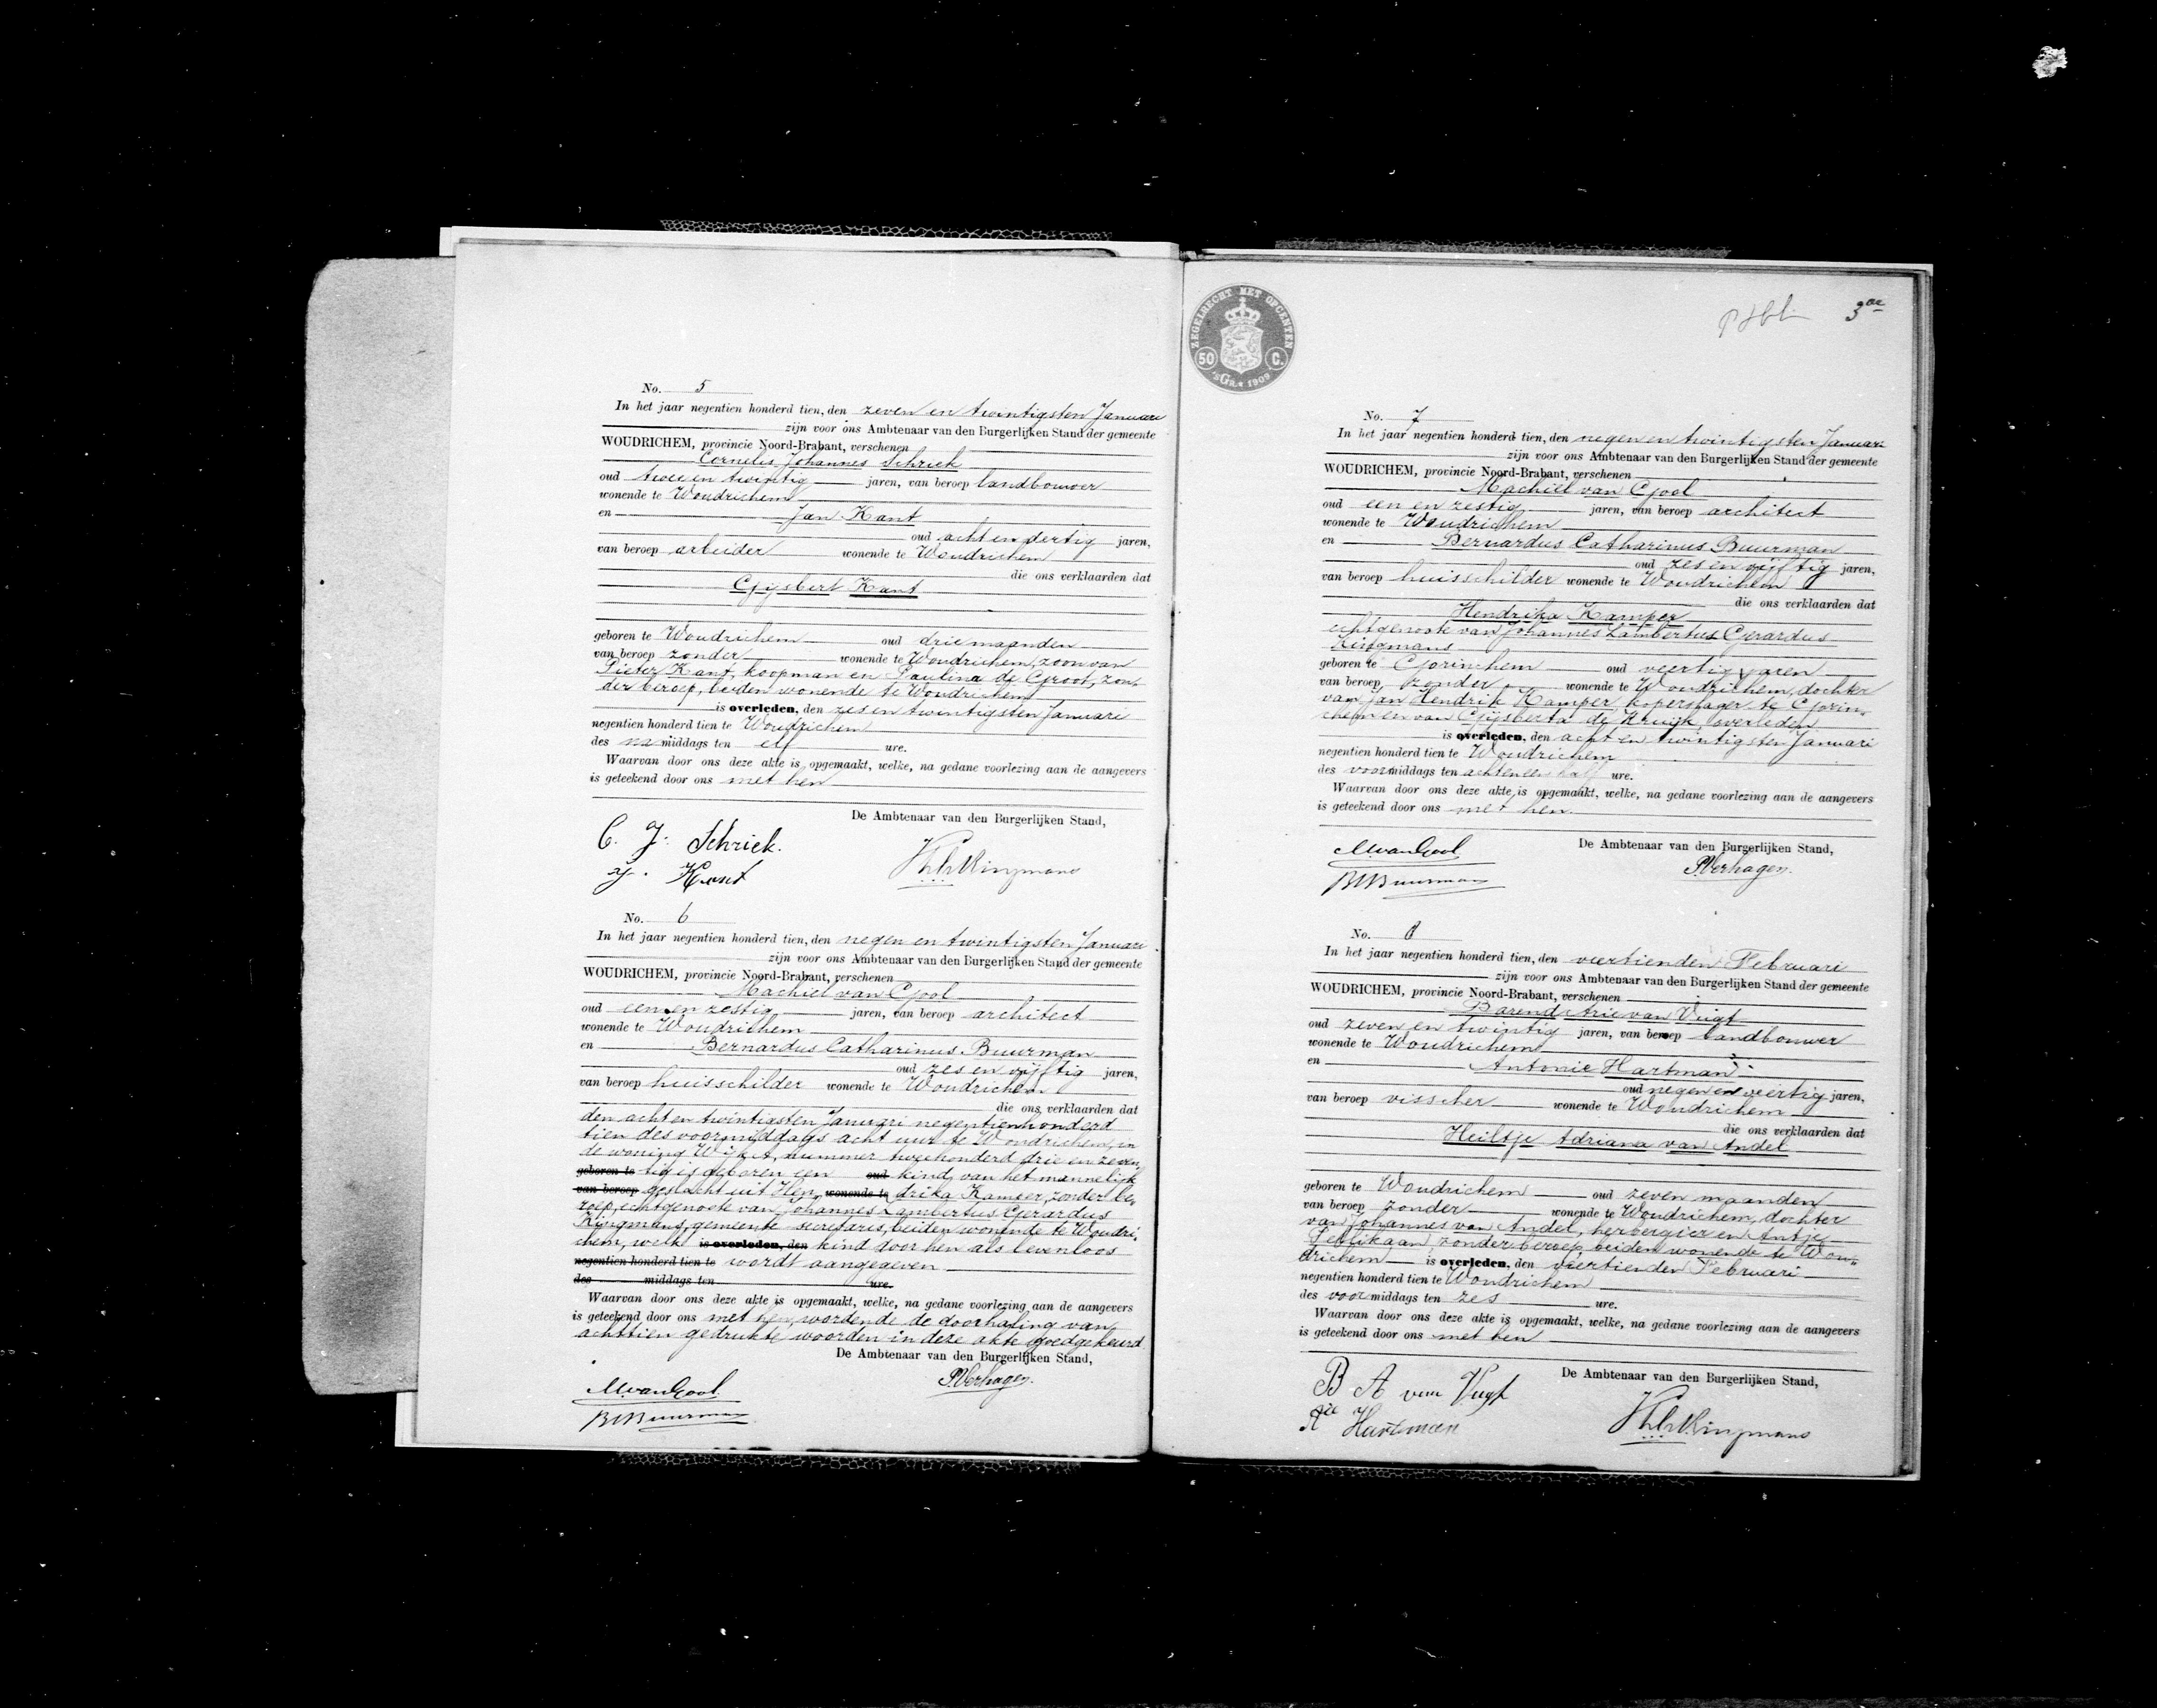 No. 5
In het jaar negentien honderd tien, den zeven en twintigsten Januari
zijn voor ons Ambtenaar van den Burgerlijken Stand der gemeente
WOUDRICHEM, provincie Noord-Brabant, verschenen
Cornelis Johannes Schriek
oud twee en twintig jaren, van beroep landbouwer
wonende te Woudrichem
en Jan Kant
oud acht en dertig jaren,
van beroep arbeider wonende te Woudrichem
die ons verklaarden dat
Gijsbert Kant
geboren te Woudrichem oud drie maanden
van beroep zonder wonende te Woudrichem, zoon van
Pieter Kant, koopman en Paulina de Groot, zon-
der beroep, beiden wonende te Woudrichem
is overleden, den zes en twintigsten Januari
negentien honderd tien te Woudrichem
des na middags ten elf ure.
Waarvan door ons deze akte is opgemaakt, welke, na gedane voorlezing aan de aangevers
is geteekend door ons met hen
De Ambtenaar van den Burgerlijken Stand,
C. J. Schriek.
J. Kant
Kingmans
No. 6
In het jaar negentien honderd tien, den negen en twintigsten Januari
zijn voor ons Ambtenaar van den Burgerlijken Stand der gemeente
WOUDRICHEM, provincie Noord-Brabant, verschenen
Machiel van Gool
oud een en zestig jaren, van beroep architect
wonende te Woudrichem
en Bernardus Catharinus Buurman
oud zes en vijftig jaren,
van beroep huisschilder wonende te Woudrichem
die ons verklaarden dat
den acht en twintigsten Januari negentienhonderd
tien des voormiddags acht uur te Woudrichem, in
de woning Wijk A, nummer tweehonderd drie en zeven
geboren te tig is geboren een oud kind van het mannelijk
van beroep geslacht uit Hen wonende te drika Kamper, zonder be-
roep, echtgenoote van Johannes Lambertus Gerardus
Kingmans, gemeente secretaris, beiden wonende te Woudri-
chem, welk is overleden, den kind door hen als levenloos
negentien honderd tien te wordt aangegeven
des middags ten ure.
Waarvan door ons deze akte is opgemaakt, welke, na gedane voorlezing aan de aangevers
is geteekend door ons met hen, wordende de doorhaling van
achttien gedrukte woorden in deze akte goedgekeurd
De Ambtenaar van den Burgerlijken Stand,
M van Gool
BC Buurman
P Verhagen.
ZEGELRECHT MET OPCENTEN
50 C.
'sGra. 1909
3de
No. 7
In het jaar negentien honderd tien, den negen en twintigsten Januari
zijn voor ons Ambtenaar van den Burgerlijken Stand der gemeente
WOUDRICHEM, provincie Noord-Brabant, verschenen
Machiel van Gool
oud een en zestig jaren, van beroep architect
wonende te Woudrichem
en Bernardus Catharinus Buurman
oud zes en vijftig jaren,
van beroep huisschilder wonende te Woudrichem
die ons verklaarden dat
Hendrika Kamper
echtgenoote van Johannes Lambertus Gerardus
Kingmans
geboren te Gorinchem oud veertig jaren
van beroep zonder wonende te Woudrichem, dochter
van Jan Hendrik Kamper, koperslager te Gorin-
chem en van Gijsberta de Kruijk, overleden
is overleden, den acht en twintigsten Januari
negentien honderd tien te Woudrichem
des voor middags ten acht en een half ure.
Waarvan door ons deze akte is opgemaakt, welke, na gedane voorlezing aan de aangevers
is geteekend door ons met hen.
De Ambtenaar van den Burgerlijken Stand,
M van Gool
BC Buurman
P Verhagen.
No. 8
In het jaar negentien honderd tien, den veertienden Februari
zijn voor ons Ambtenaar van den Burgerlijken Stand der gemeente
WOUDRICHEM, provincie Noord-Brabant, verschenen
Barend Arie van Vugt
oud zeven en twintig jaren, van beroep landbouwer
wonende te Woudrichem
en Antonie Hartman
oud negen en veertig jaren,
van beroep visscher wonende te Woudrichem
die ons verklaarden dat
Heiltje Adriana van Andel
geboren te Woudrichem oud zeven maanden
van beroep zonder wonende te Woudrichem, dochter
van Johannes van Andel, herbergier en Antje
zonder beroep, beiden wonende te Wou-
drichem is overleden, den veertienden Februari
negentien honderd tien te Woudrichem
des voor middags ten zes ure.
Waarvan door ons deze akte is opgemaakt, welke, na gedane voorlezing aan de aangevers
is geteekend door ons met hen
De Ambtenaar van den Burgerlijken Stand,
B A van Vugt
Hartman
Kingmans